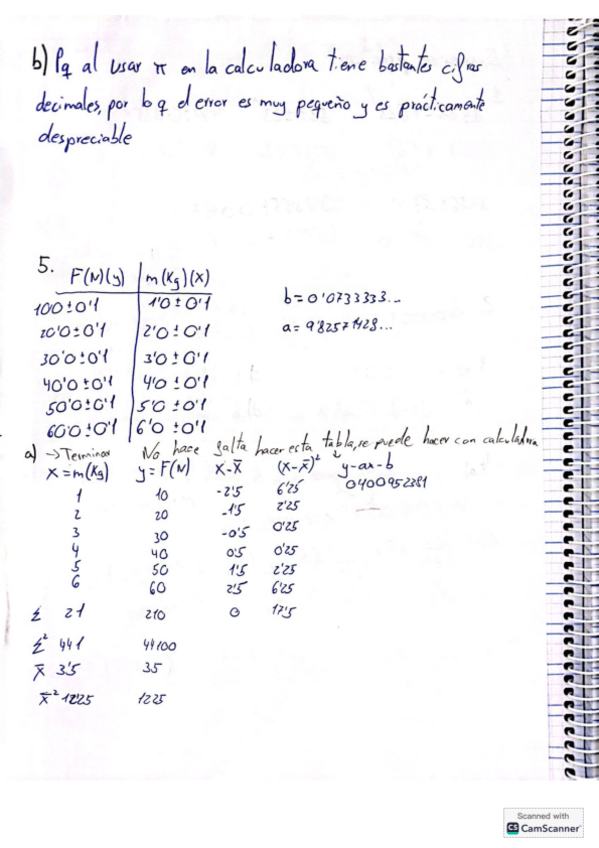 b) Pq al usar π en la calculadora tiene bastantes cifras
decimales, por lo q el error es muy pequeño y es prácticamente
despreciable
5.
F(N)(y) m(Kg)(x)
10'0 ± 0'1 1'0 ± 0'1 b = 0'0733333...
20'0 ± 0'1 2'0 ± 0'1 a = 9'82571428...
30'0 ± 0'1 3'0 ± 0'1
40'0 ± 0'1 4'0 ± 0'1
50'0 ± 0'1 5'0 ± 0'1
60'0 ± 0'1 6'0 ± 0'1
a) → Terminar No hace falta hacer esta tabla, se puede hacer con calculadora
x = m(Kg) y = F(N) x - x̄ (x - x̄)² y - ax - b
1 10 -2'5 6'25 0'400952381
2 20 -1'5 2'25
3 30 -0'5 0'25
4 40 0'5 0'25
5 50 1'5 2'25
6 60 2'5 6'25
Σ 21 210 0 17'5
Σ² 441 44100
x̄ 3'5 35
x̄² 12'25 1225
Scanned with
CS CamScanner